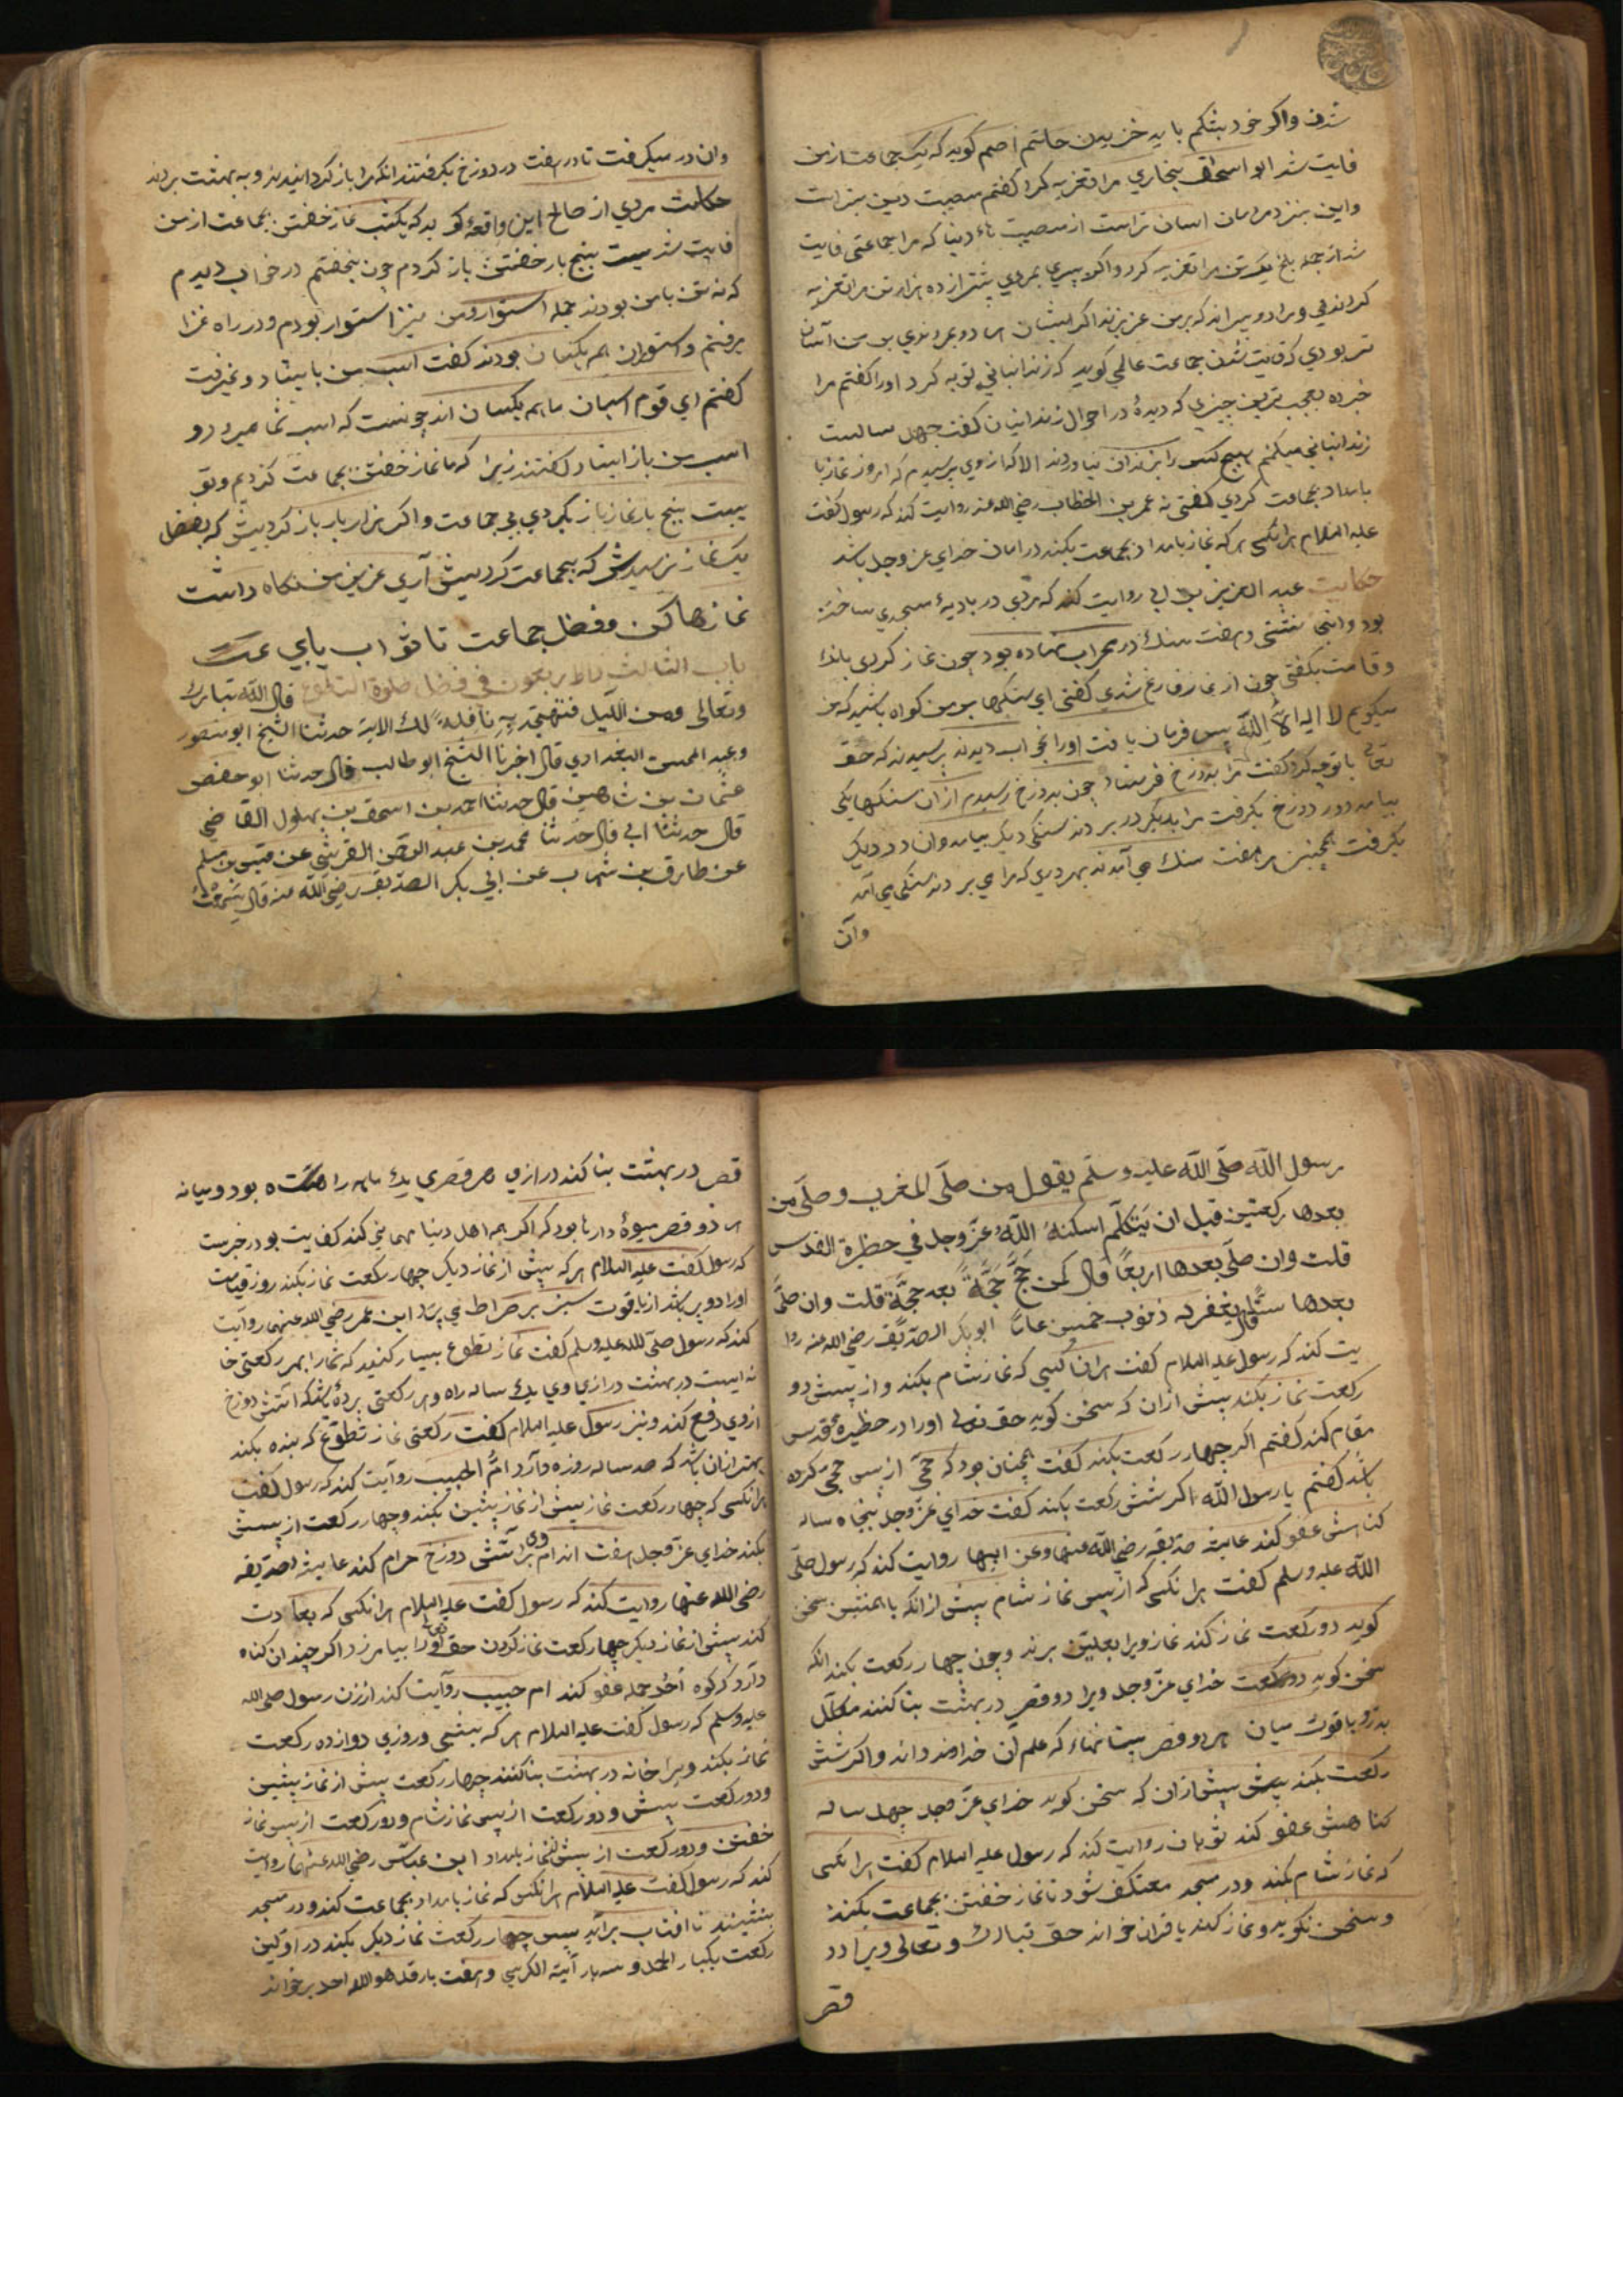 شدن واکر خود بشکم باید خزیدن حاتم اصم کوید که یک جماعت از من
فایت شد ابو اسحاق بخاري مرا تعزیه کرد کفتم مصیبت دین
واین بنزد مردمان اسان تراست از مصیبت دنیا که مرا جماعتی فایت
شد از جمله بلخ یک تن مرا تعزیه کرد واکر پسري بمردي بیشتر از ده هزار تن مرا تعزیه
کردندي ومرا دو پسر اند که بر من عزیزند اکر ایشان هر دو بمردندي بر من آسان
تر بودي که فایت شدن جماعت عالمي کوید که زندانباني توبه کرد اورا کفتم مرا
خبر ده بعجب ترین چیزي که دیدهٔ در احوال زندانیان کفت چهل سالست
زندانباني میکنم هیچ کس را بزندان نیاوردند الا که از وي پرسیدم که امروز نماز با
بامداد بجماعت کردي کفتي نه عمر بن الخطاب رضي الله عنه روایت کند که رسول کفت
علیه السلام هرانکسي هر که نماز بامداد بجماعت بکند در امان خداي عز وجل باشد
حکایت عبد العزیز روایت کند که مردي در بادیهٔ مسجدي ساخته
بود وهفت سنك در محراب نهاده بود چون نماز کردي بانك
وقامت بکفتي چون از نماز فارغ شدي کفتي اي سنکها بر من کواه باشید که من
میکویم لا اله الا الله پس فرمان یافت اورا بخواب دیدند پرسیدند که حق
تعالی با تو چه کرد کفت مرا بدوزخ فرستاد چون بدوزخ رسیدم از ان سنکها یکي
بیامد ودر دوزخ بکرفت مرا بدیکر در بردند سنکي دیکر بیامد وان در دیکر
بکرفت همچنین هر هفت سنك مي آمدند بهر دري که مرا مي بردند سنکي مي آمد
وآن
وان در میکرفت تا در هفت در دوزخ بکرفتند انکه مرا باز کردانیدند وبه بهشت بردند
حکایت مردي از صالح این واقعه بود که یکشب نماز خفتن بجماعت از من
فایت شد بیست پنج بار خفتن باز کردم چون بخفتم در خواب دیدم
که نه تن با من بودند جمله استوار ومن نیز استوار بودم ودر راه غزا
برفتم واستوران هم یکسان بودند کفت اسب من باستاد ونمیرفت
کفتم اي قوم اسبان ما هم یکسان اند چونست که اسب شما میرود و
اسب من باز ایستاد کفتند زیرا که ما نماز خفتن بجماعت کردیم وتو
بیست پنج بار نماز باز کردي بي جماعت واکر هزار بار باز کردییش که بفضل
یك نماز نرسیدیش که بجماعت کردییش آري عزیز من نکاه داشت
نمازها کن وفضل جماعت تا ثواب یابي عـت
باب الثالث والاربعون في فضل صلوة التطوع قال الله تبارك
وتعالى ومن اللیل فتهجد به نافلة لك الایة حدثنا الشیخ ابو منصور
وعبد المحسن البغدادي قال اخبرنا الشیخ ابو طالب قال حدثنا ابو حفص
عثمان بن شاهین قال حدثنا احمد بن اسحق بن بهلول القاضي
قال حدثنا ابي قال حدثنا محمد بن عبد الرحمن القریشي عن قیس بن مسلم
عن طارق بن شهاب عن ابي بکر الصدیق رضي الله عنه قال سمعت
رسول الله صلى الله علیه وسلم یقول من صلى المغرب وصلى من
بعدها رکعتین قبل ان یتکلم اسکنه الله عز وجل في حظیرة القدس
قلت وان صلى بعدها اربعا قال کمن حج حجة بعد حجة قلت وان صلى
بعدها ستا قال یغفر له ذنوب خمسین عاما ابو بکر الصدیق رضي الله عنه روا
یت کند که رسول علیه السلام کفت هران کسي که نماز شام بکند واز پسش دو
رکعت نماز بکند پیش ازان که سخن کوید حق تعالی اورا در حظیره قدس
مقام کند کفتم اکر چهار رکعت بکند کفت همچنان بود که حجي از پس حجي کرده
باشد کفتم یا رسول الله اکر شش رکعت بکند کفت خداي عز وجل پنجاه ساله
کناهش عفو کند عایشه صدیقه رضي الله عنها وعن ابیها روایت کند که رسول صلى
الله علیه وسلم کفت هرانکسي که از پس نماز شام پیش ازانکه با همنشین سخن
کوید دو رکعت نماز کند نماز ویرا بعلیین برند وچون چهار رکعت بکند انکه
سخن کوید دو رکعت خداي عز وجل ویرا دو قصر در بهشت بنا کند مکلل
بدر ویاقوت میان هر دو قصر بستانها که علم آن خداوند داند واکر شش
رکعت بکند پیش ازان که سخن کوید خداي عز وجل چهل ساله
کناهش عفو کند ثوبان روایت کند که رسول علیه السلام کفت هرانکسي
که نماز شام بکند ودر مسجد معتکف شود تا نماز خفتن بجماعت بکند
وسخن نکوید ونماز کند یا قران خواند حق تبارك وتعالی ویرا دو
قصر
قصر در بهشت بنا کند درازي هر قصري یك ماهه راه بود ومیانه
هر دو قصر میوهٔ دارها بود که اکر همه اهل دنیا مهماني کند کفایت بود در خبرست
که رسول کفت علیه السلام هر که پیش از نماز دیکر چهار رکعت نماز بکند روز قیامت
اورا دو پر باشد از یاقوت سبز بر صراط مي پرد ابن عمر رضي الله عنهما روایت
کند که رسول صلى الله علیه وسلم کفت نماز تطوع بسیار کنید که شمارا بهر رکعتي خا
نه ایست در بهشت درازي وي یك ساله راه وهر رکعتي پردهٔ باشد که آتش دوزخ
ازوي دفع کند ونیز رسول علیه السلام کفت رکعتي نماز تطوع که بنده بکند
بهتر ازان باشد که صد ساله روزه دارد ام الحبیب روایت کند که رسول کفت
هرانکسي که چهار رکعت نماز پیش از نماز پیشین بکند وچهار رکعت از پسش
بکند خداي عز وجل هفت اندام وي برآتش دوزخ حرام کند عایشه صدیقه
رضي الله عنها روایت کند که رسول کفت علیه السلام هرانکسي که بعادت
کند پیش از نماز دیکر چهار رکعت نماز کردن حق تعالی اورا بیامرزد اکر چندان کناه
دارد که کوه احد جمله عفو کند ام حبیب روایت کند از زن رسول صلى الله
علیه وسلم که رسول کفت علیه السلام هر که بشبي وروزي دوازده رکعت
نماز بکند ویرا خانه در بهشت بنا کنند چهار رکعت پیش از نماز پیشین
ودو رکعت پسش ودو رکعت از پس نماز شام ودو رکعت از پس نماز
خفتن ودو رکعت از پیش نماز بامداد ابن عباس رضي الله عنهما روایت
کند که رسول کفت علیه السلام هرانکس که نماز بامداد بجماعت کند ودر مسجد
بنشیند تا افتاب برآید پس چهار رکعت نماز دیکر بکند در اولین
رکعت یکبار الحمد وسه بار آیة الکرسي وهفت بار قل هو الله احد برخواند